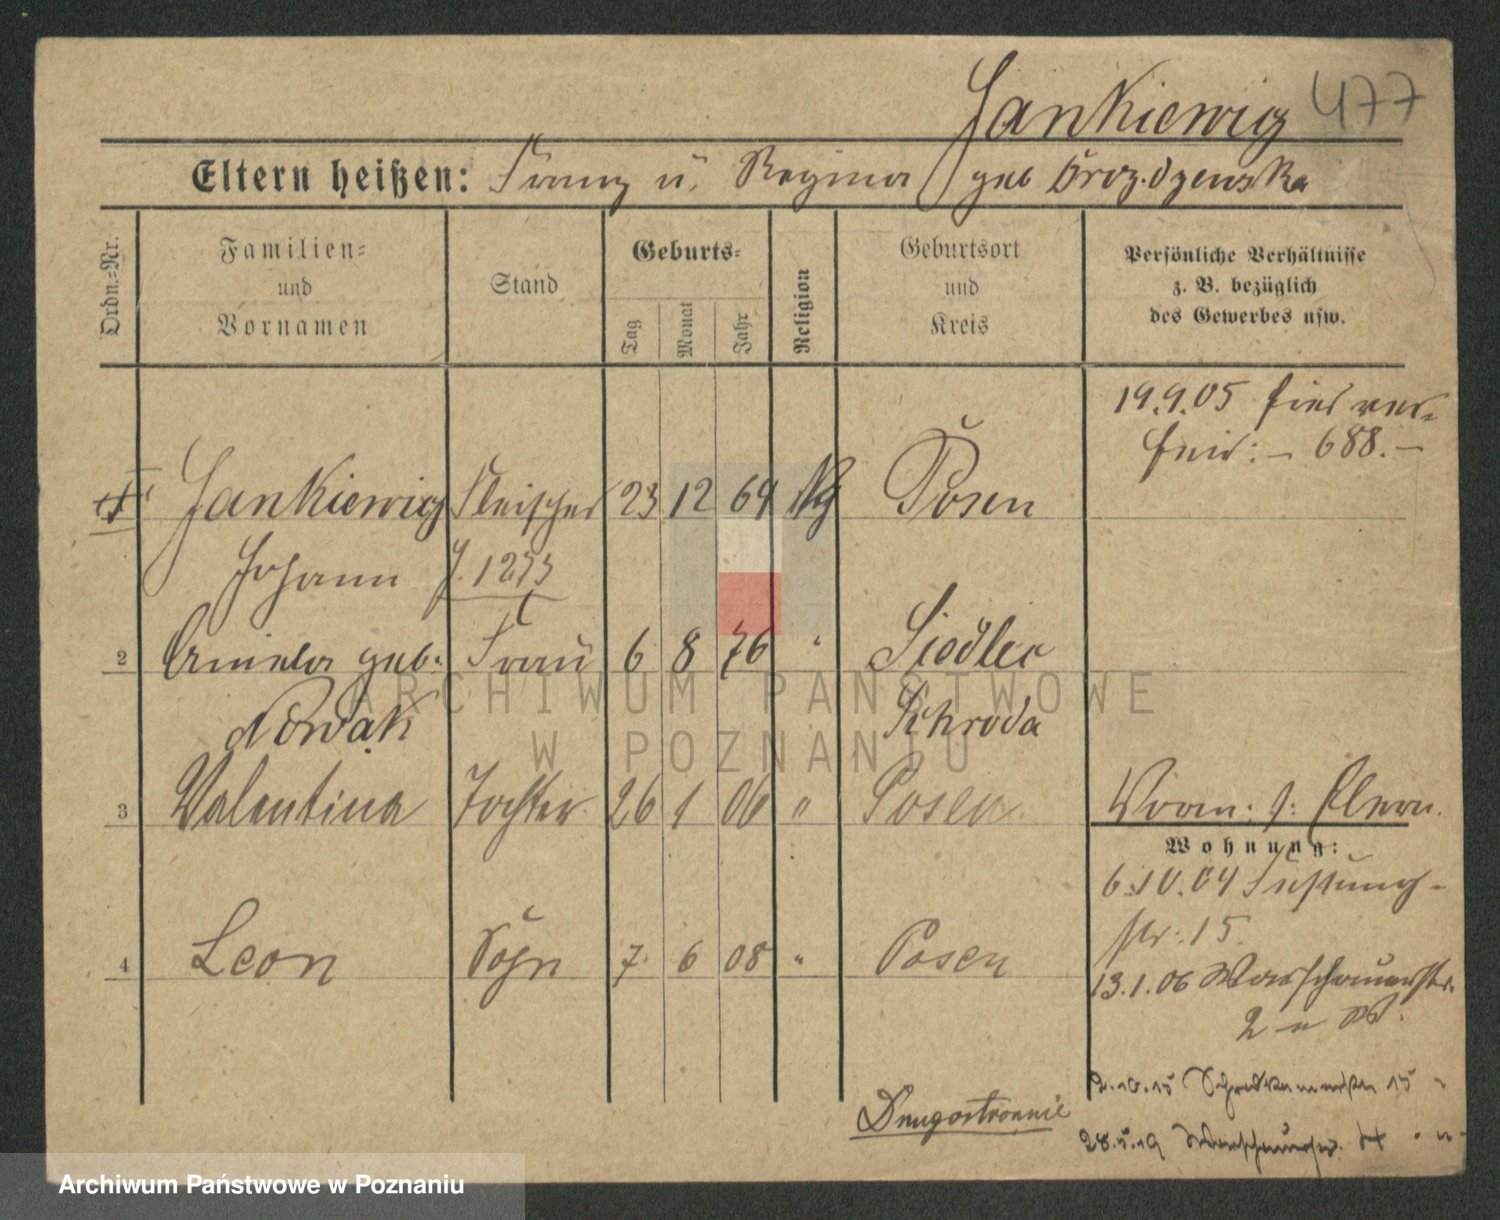 Jankiewicz 477
Eltern heißen: Franz u. Regina geb Drozdzewska
Ordn.=Nr.
Familien=
und
Vornamen
Stand
Geburts=
Tag
Monat
Jahr
Religion
Geburtsort
und
Kreis
Persönliche Verhältnisse
z. B. bezüglich
des Gewerbes usw.
19.9.05
688.–
Jankiewicz Fleischer 23 12 64 Posen
Johann J. 1273
2 Aniela geb. Frau 6 8 76 " Siedlec
Nowak Schroda
3 Valentina Tochter 26 1 06 " Posen
Wohnung:
6.10.04
str. 15
4 Leon Sohn 7 6 08 " Posen
13.1.06 Warschauerstr.
2
2.10.15 15
Drugostronnie
28.5.19
ARCHIWUM PAŃSTWOWE
W POZNANIU
Archiwum Państwowe w Poznaniu